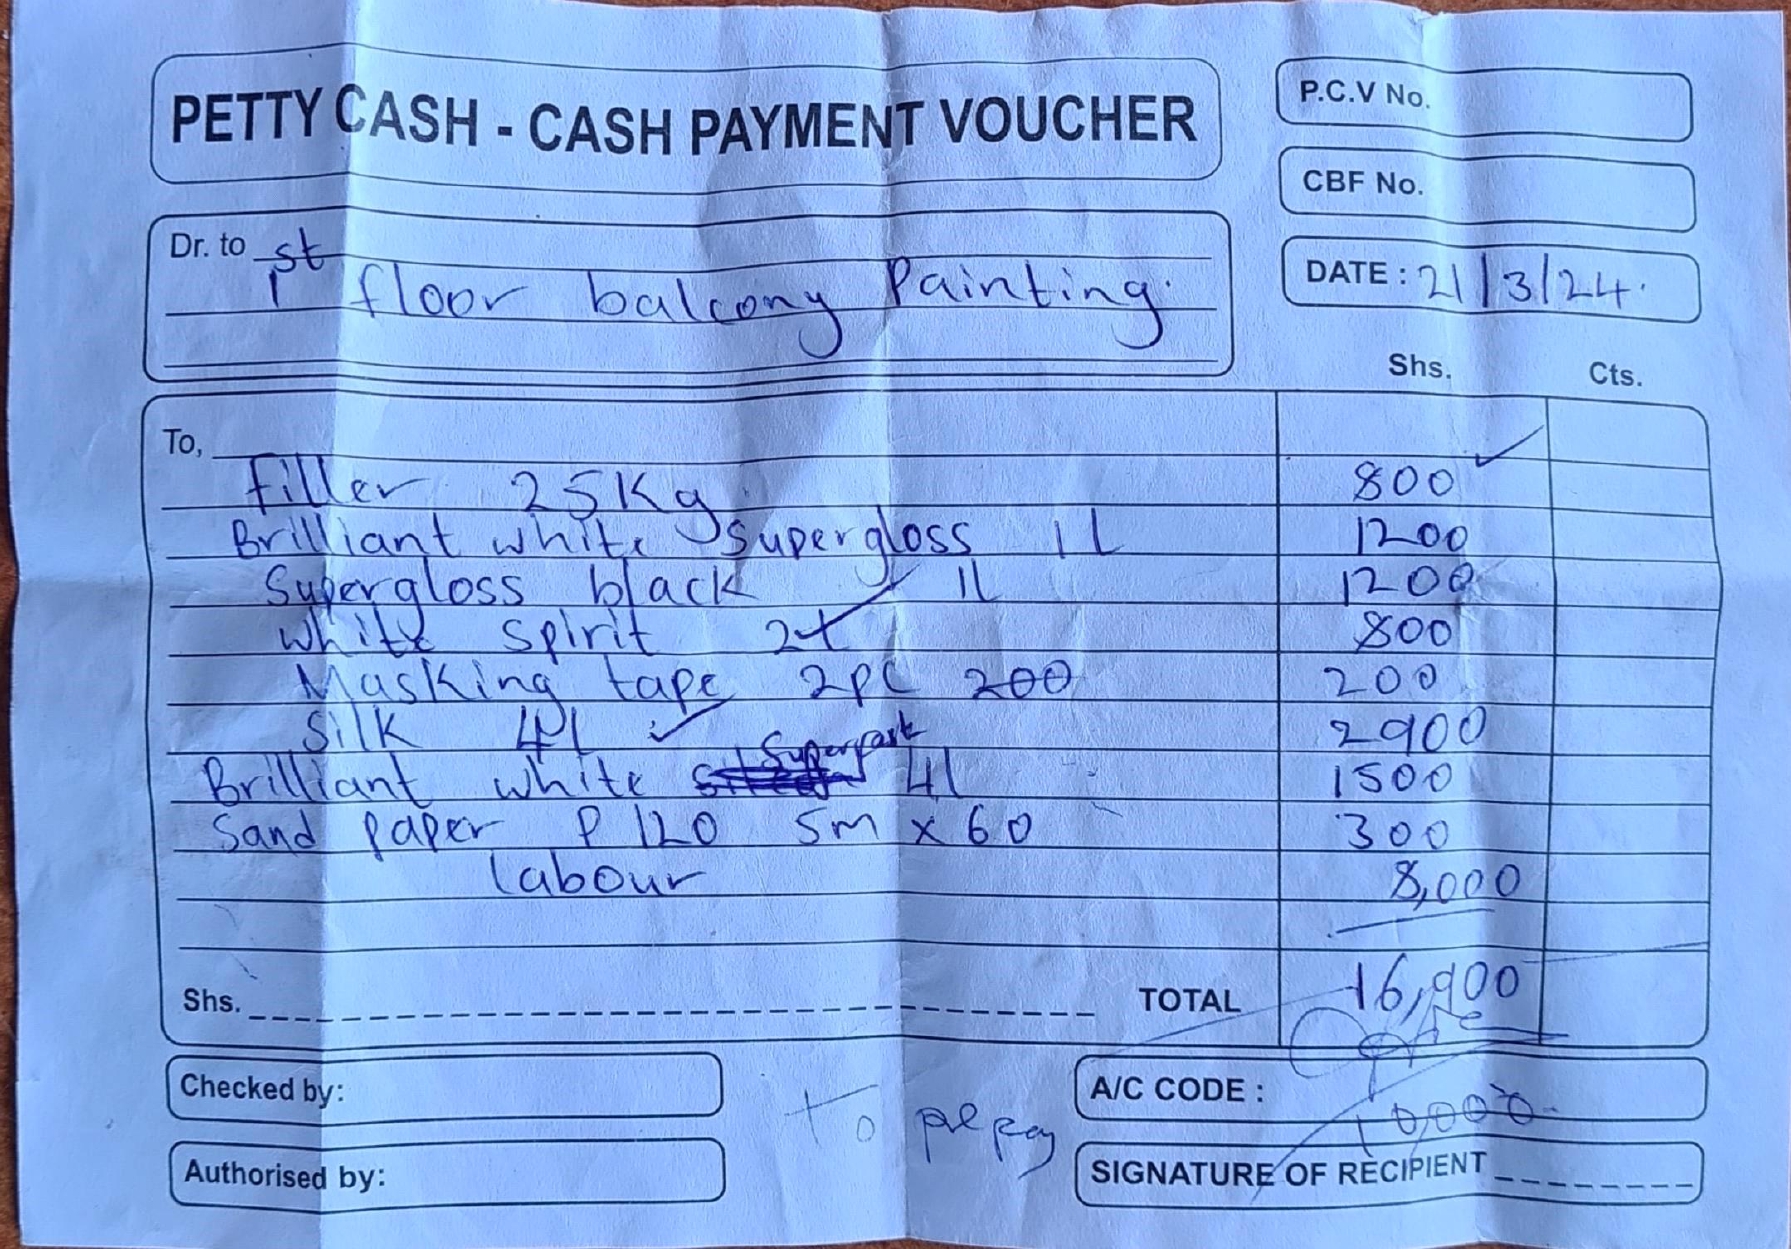 PETTY CASH - CASH PAYMENT VOUCHER
P.C.V No.
CBF No.
DATE : 21/3/24.
Dr. to
1st floor balcony Painting.
Shs. Cts.
To,
Filler 25Kg 800
Brilliant white Supergloss 1L 1200
Supergloss black 1L 1200
White Spirit 2L 800
Masking tape 2pc 200 200
Silk 4L 2900
Brilliant white Superpark 4L 1500
Sand paper P120 5m x 60 300
labour 8,000
Shs. TOTAL 16,900
Checked by:
A/C CODE :
to prepay 10,000
Authorised by:
SIGNATURE OF RECIPIENT